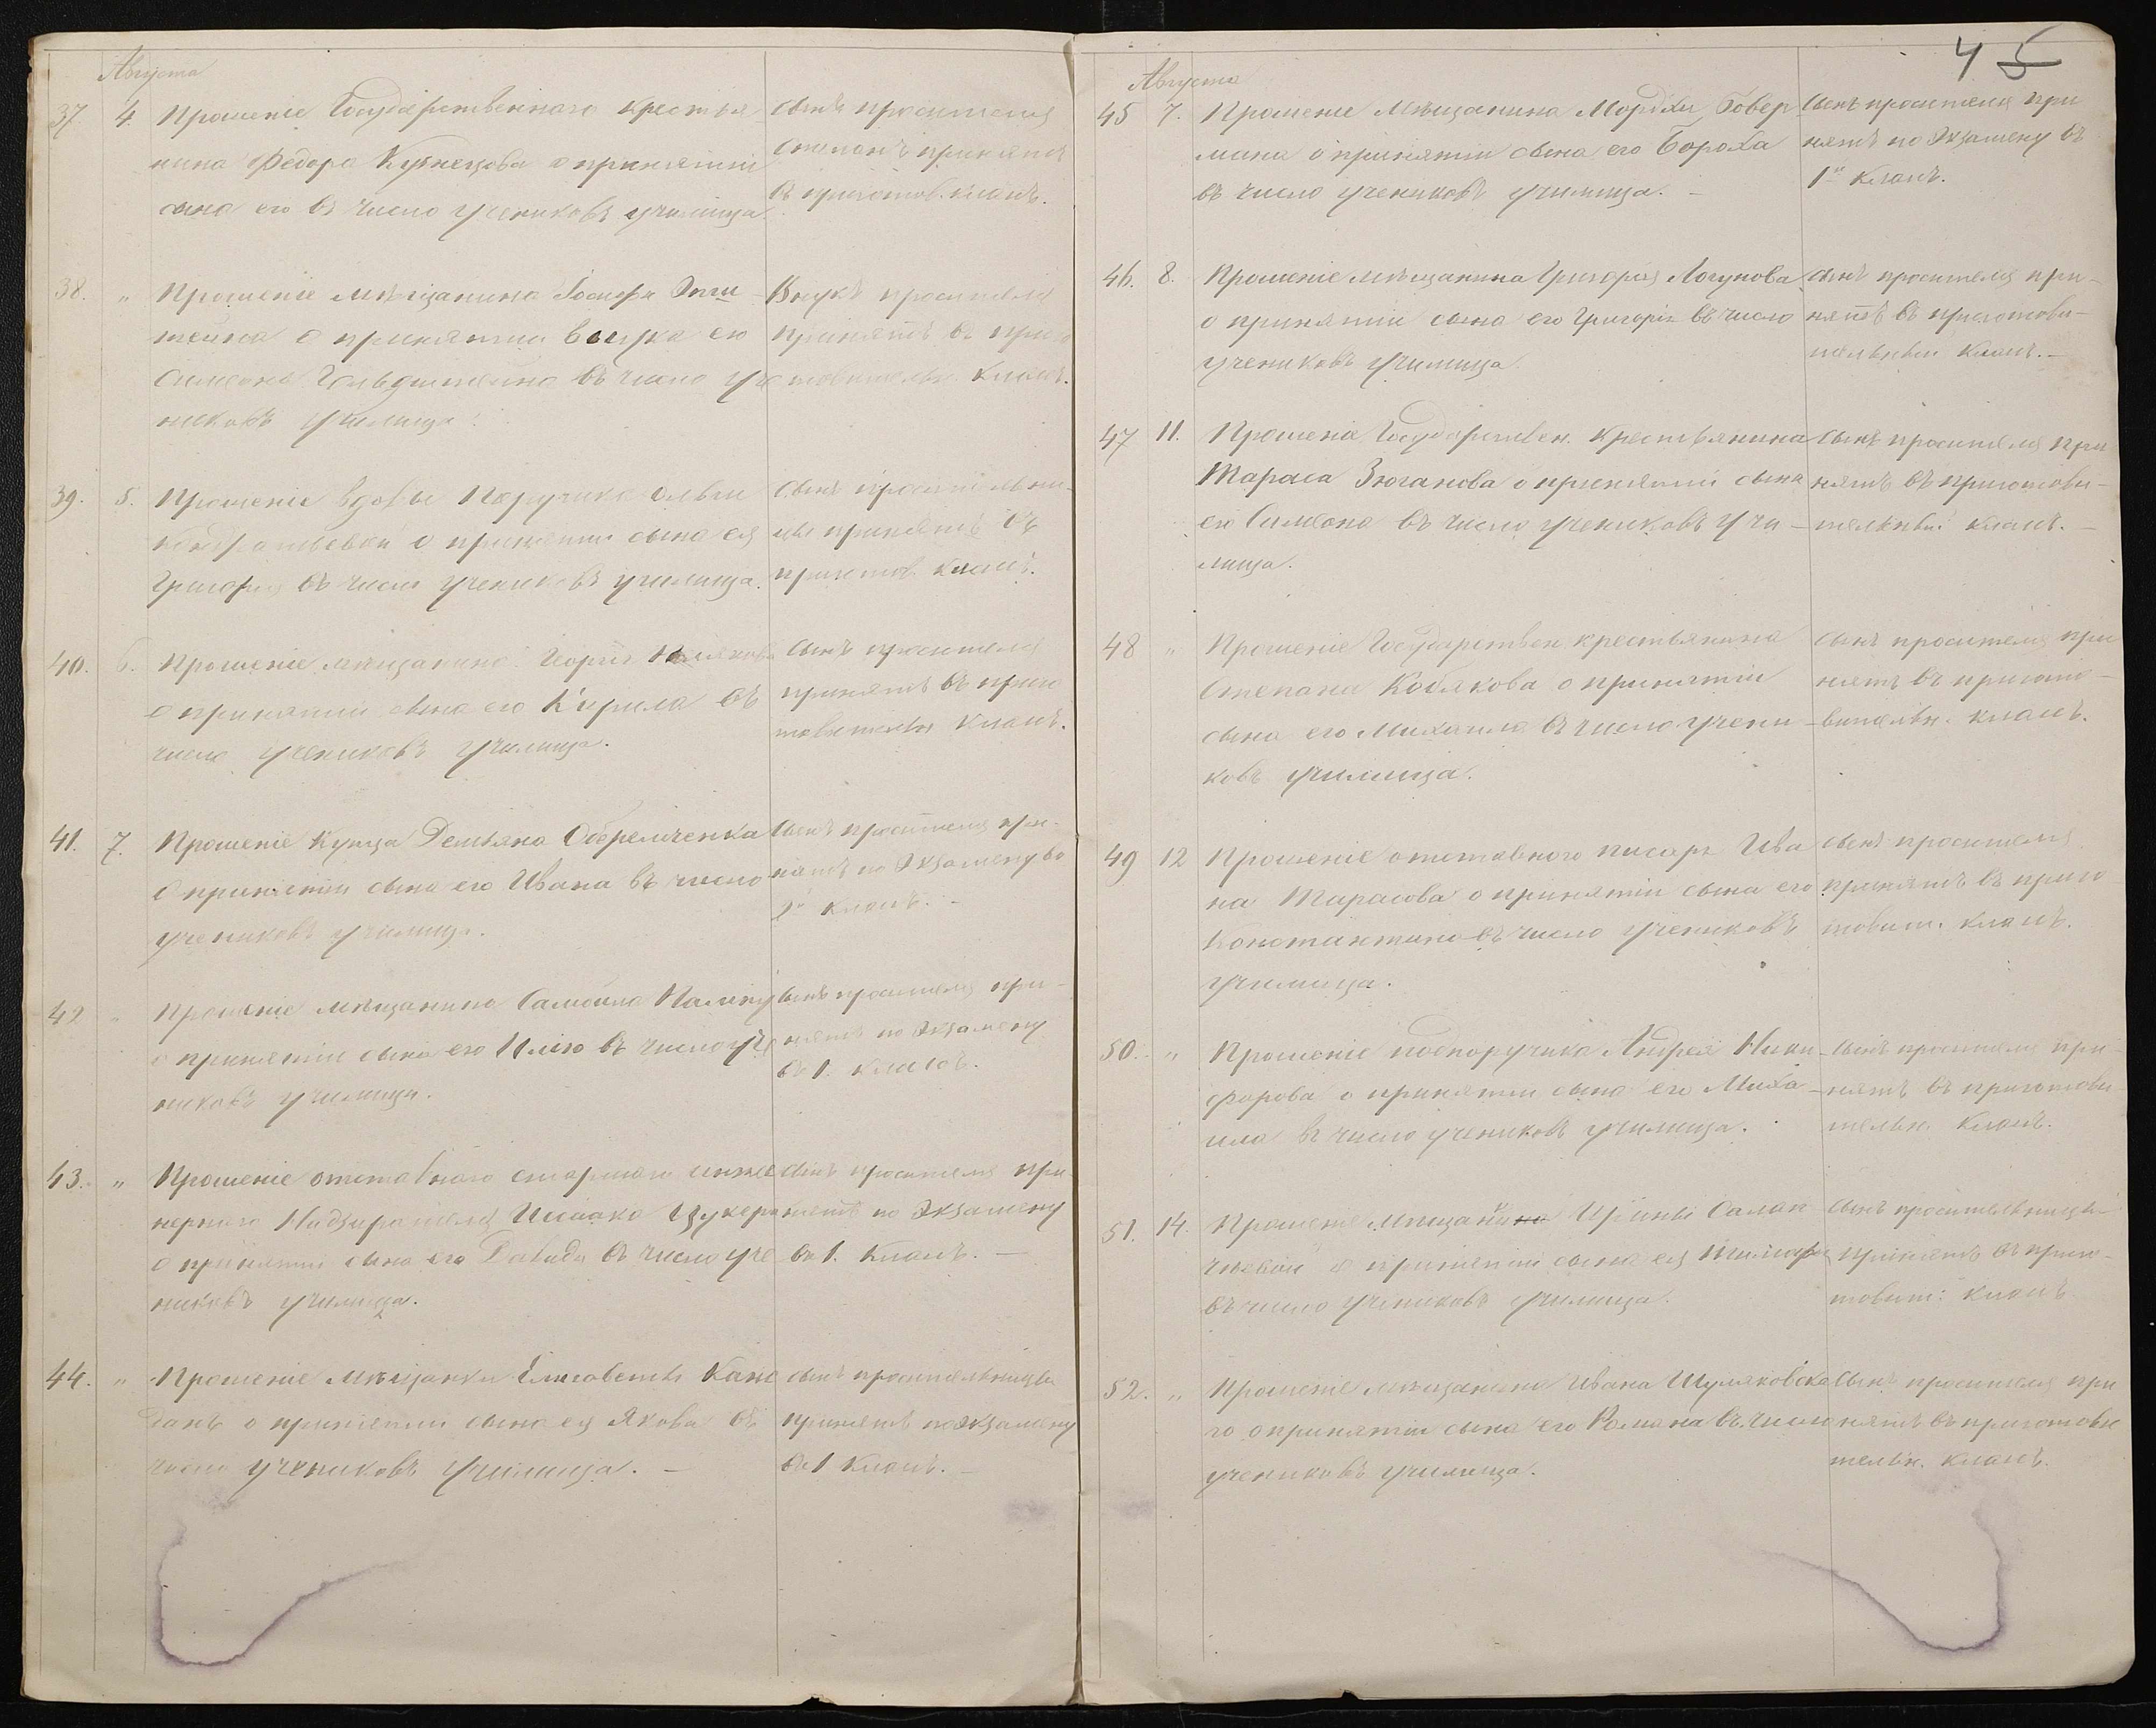 Августа
37. 4. Прошеніе Государственнаго крестья
нина Федора Кузнецова о принятіи
сына его въ число учениковъ училища
сынъ просителя
Степанъ принятъ
въ приготов. классъ.
38. „ Прошеніе мѣщанина Іосифа Эпш
тейна о принятіи внука его
Симеона Гольдштейна въ число уче
никовъ училища.
Внукъ просителя
принятъ въ приго
товительн. классъ.
39. 5. Прошеніе вдовы Поручика Ольги
о принятіи сына ея
Григорія въ число учениковъ училища.
сынъ просительни
цы принятъ въ
приготов. классъ.
40. 6. Прошеніе мѣщанина Георгія
о принятіи сына его Кирила въ
число учениковъ училища.
сынъ просителя
принятъ въ приго
товительн классъ.
41. 7. Прошеніе купца Демьяна Оберемченка
о принятіи сына его Ивана въ число
учениковъ училища.
Сынъ просителя при-
нятъ по Экзамену во
классъ. -
42 „ Прошеніе мѣщанина Самойла
о принятіи сына его въ число уче
никовъ училища.
сынъ просителя при-
нятъ по Экзамену
въ 1. классъ.
43. „ Прошеніе отставнаго старшаго инже
нернаго Надзирателя Исаака Цукера
о принятіи сына его Давида въ число уче
никовъ училища.
сынъ просителя при-
нятъ по Экзамену
въ 1. классъ. —
44. „ Прошеніе мѣщанки Елисаветы
о принятіи сына ея Якова въ
число учениковъ училища. —
сынъ просительницы
принятъ по экзамену
въ 1 классъ. —
4 5
Августа
45 7. Прошеніе Мѣщанина Мордхи Говер
мана о принятіи сына его Бороха
въ число учениковъ училища. -
Сынъ просителя при
нятъ по Экзамену въ
1й классъ.
46. 8. Прошеніе мѣщанина Григорія Логунова
о принятіи сына его Григорія въ число
учениковъ училища.
сынъ просителя при-
нятъ въ приготови-
тельный классъ. -
47 11. Прошеніе Государствен. крестьянина
Тараса Зюганова о принятіи сына
его Симеона въ число учениковъ учи-
лища.
Сынъ просителя при
нятъ въ приготови-
тельный классъ. -
48 „ Прошеніе Государствен крестьянина
Степана Кобякова о принятіи
сына его Михаила въ число учени-
ковъ училища.
сынъ просителя при
нятъ въ пригото-
вительн. классъ.
49 12 Прошеніе отставного писаря Ива
на Тарасова о принятіи сына его
Константина въ число учениковъ
училища.
сынъ просителя
принятъ въ приго
товит. классъ.
50. „ Прошеніе подпоручика Андрея Ники-
форова о принятіи сына его Миха-
ила въ число учениковъ училища.
Сынъ просителя при-
нятъ въ приготови
тельн. классъ.
51. 14. Прошеніе Ирины
о принятіи сына ея
въ число учениковъ училища.
Сынъ просительницы
принятъ въ приго-
товит: классъ
52. „ Прошеніе мѣщанина Ивана Шумяковска
го о принятіи сына его Романа въ число
учениковъ училища.
Сынъ просителя при
нятъ въ приготови
тельн. классъ.